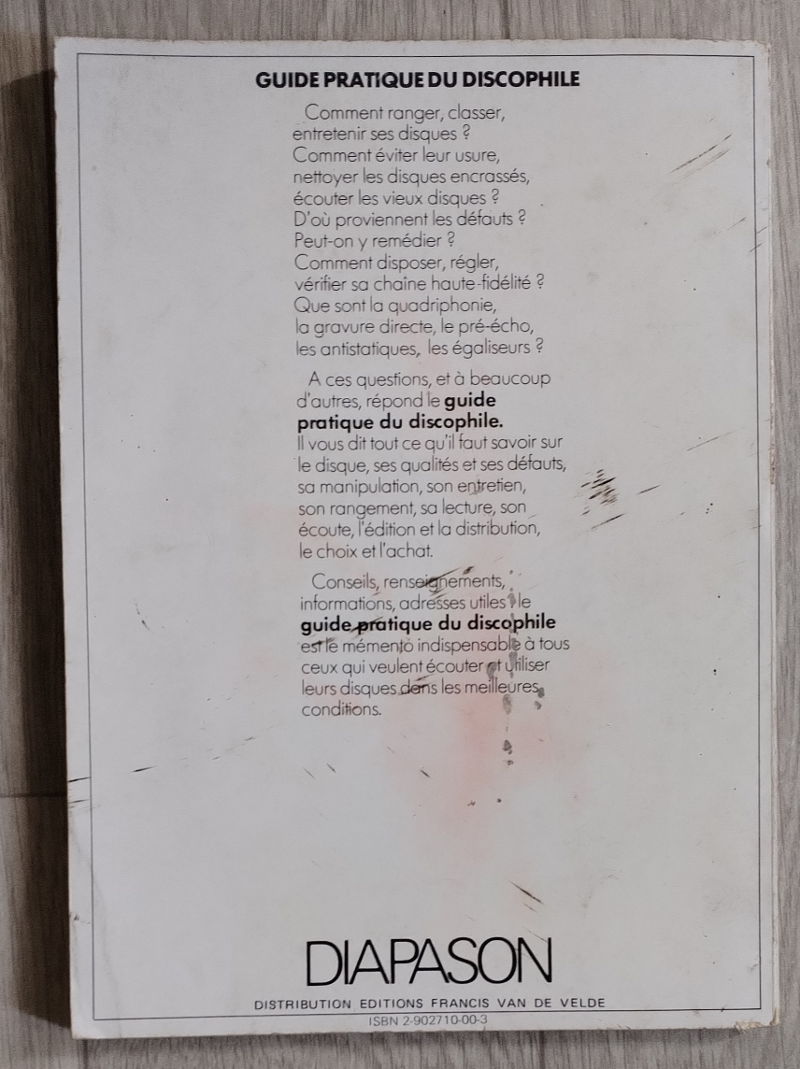 GUIDE PRATIQUE DU DISCOPHILE
Comment ranger, classer,
entretenir ses disques ?
Comment éviter leur usure,
nettoyer les disques encrassés,
écouter les vieux disques ?
D'où proviennent les défauts ?
Peut-on y remédier ?
Comment disposer, régler,
vérifier sa chaîne haute-fidélité ?
Que sont la quadriphonie,
la gravure directe, le pré-écho,
les antistatiques, les égaliseurs ?
A ces questions, et à beaucoup
d'autres, répond le guide
pratique du discophile.
Il vous dit tout ce qu'il faut savoir sur
le disque, ses qualités et ses défauts,
sa manipulation, son entretien,
son rangement, sa lecture, son
écoute, l'édition et la distribution,
le choix et l'achat.
Conseils, renseignements,
informations, adresses utiles : le
guide pratique du discophile
est le mémento indispensable à tous
ceux qui veulent écouter et utiliser
leurs disques dans les meilleures
conditions.
DIAPASON
DISTRIBUTION EDITIONS FRANCIS VAN DE VELDE
ISBN 2-902710-00-3